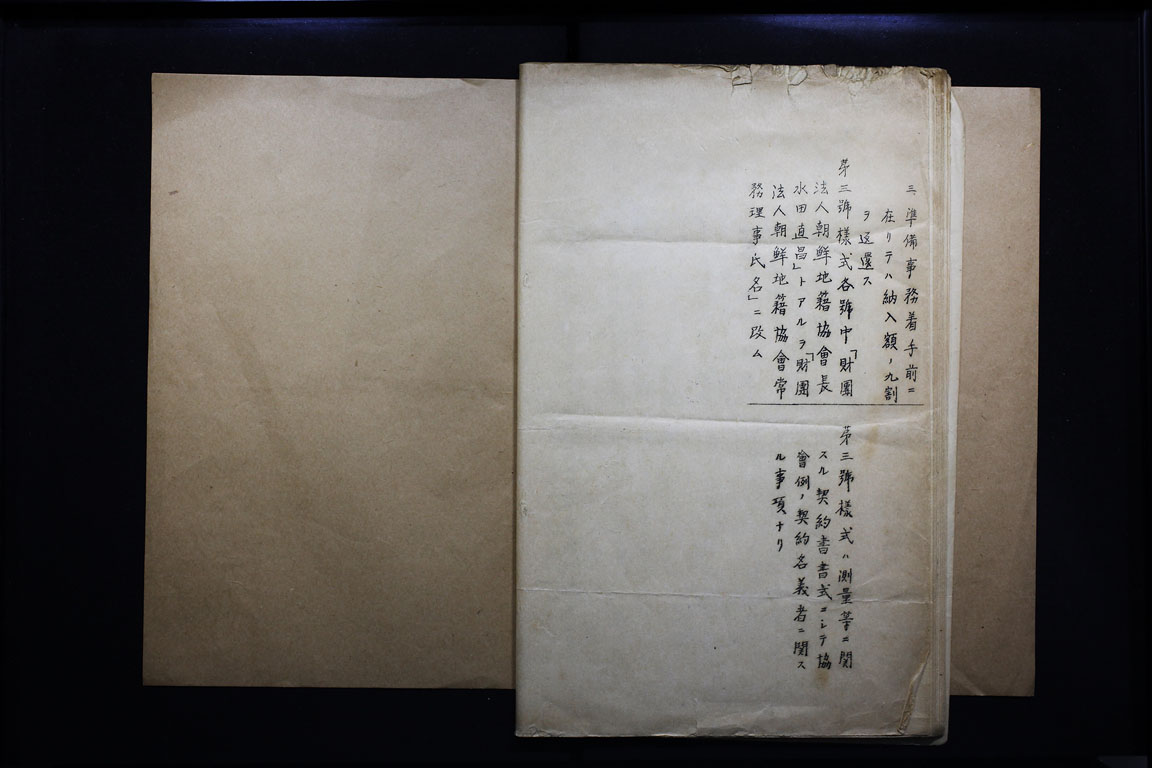 三、準備事務着手前ニ
在リテハ納入額ノ九割
ヲ返還ス
第三號樣式各號中「財團
法人朝鮮地籍協會長
水田直昌」トアルヲ「財團
法人朝鮮地籍協會常
務理事氏名」ニ改ム
第三號樣式ハ測量等ニ関
スル契約書書式ニシテ協
會例ノ契約名義者ニ関ス
ル事項ナリ